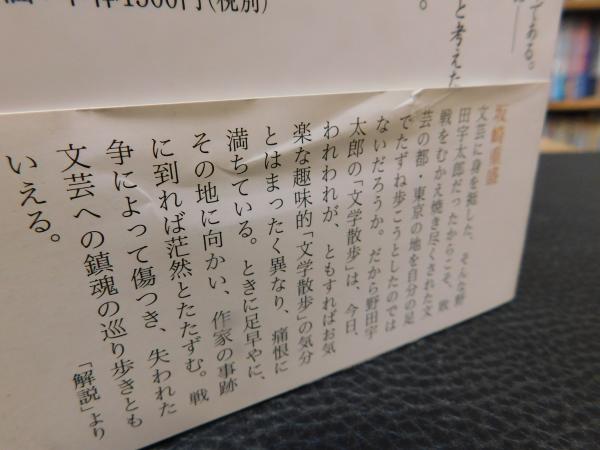 である。
と考えた
。
本体1500円(税別)
坂崎重盛
文芸に身を挺した、そんな野
田宇太郎だったからこそ、敗
戦をむかえ焼き尽くされた文
芸の都・東京の地を自分の足
でたずね歩こうとしたのでは
ないだろうか。だから野田宇
太郎の「文学散歩」は、今日、
われわれが、ともすればお気
楽な趣味的「文学散歩」の気分
とはまったく異なり、痛恨に
満ちている。ときに足早やに、
その地に向かい、作家の事跡
に到れば茫然とたたずむ。戦
争によって傷つき、失われた
文芸への鎮魂の巡り歩きとも
いえる。
「解説」より